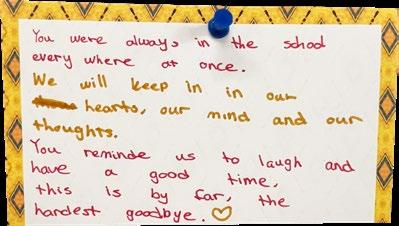 You were always in the school
every where at once.
We will keep in in our
hearts, our mind and our
thoughts.
You reminde us to laugh and
have a good time,
this is by far, the
hardest goodbye.